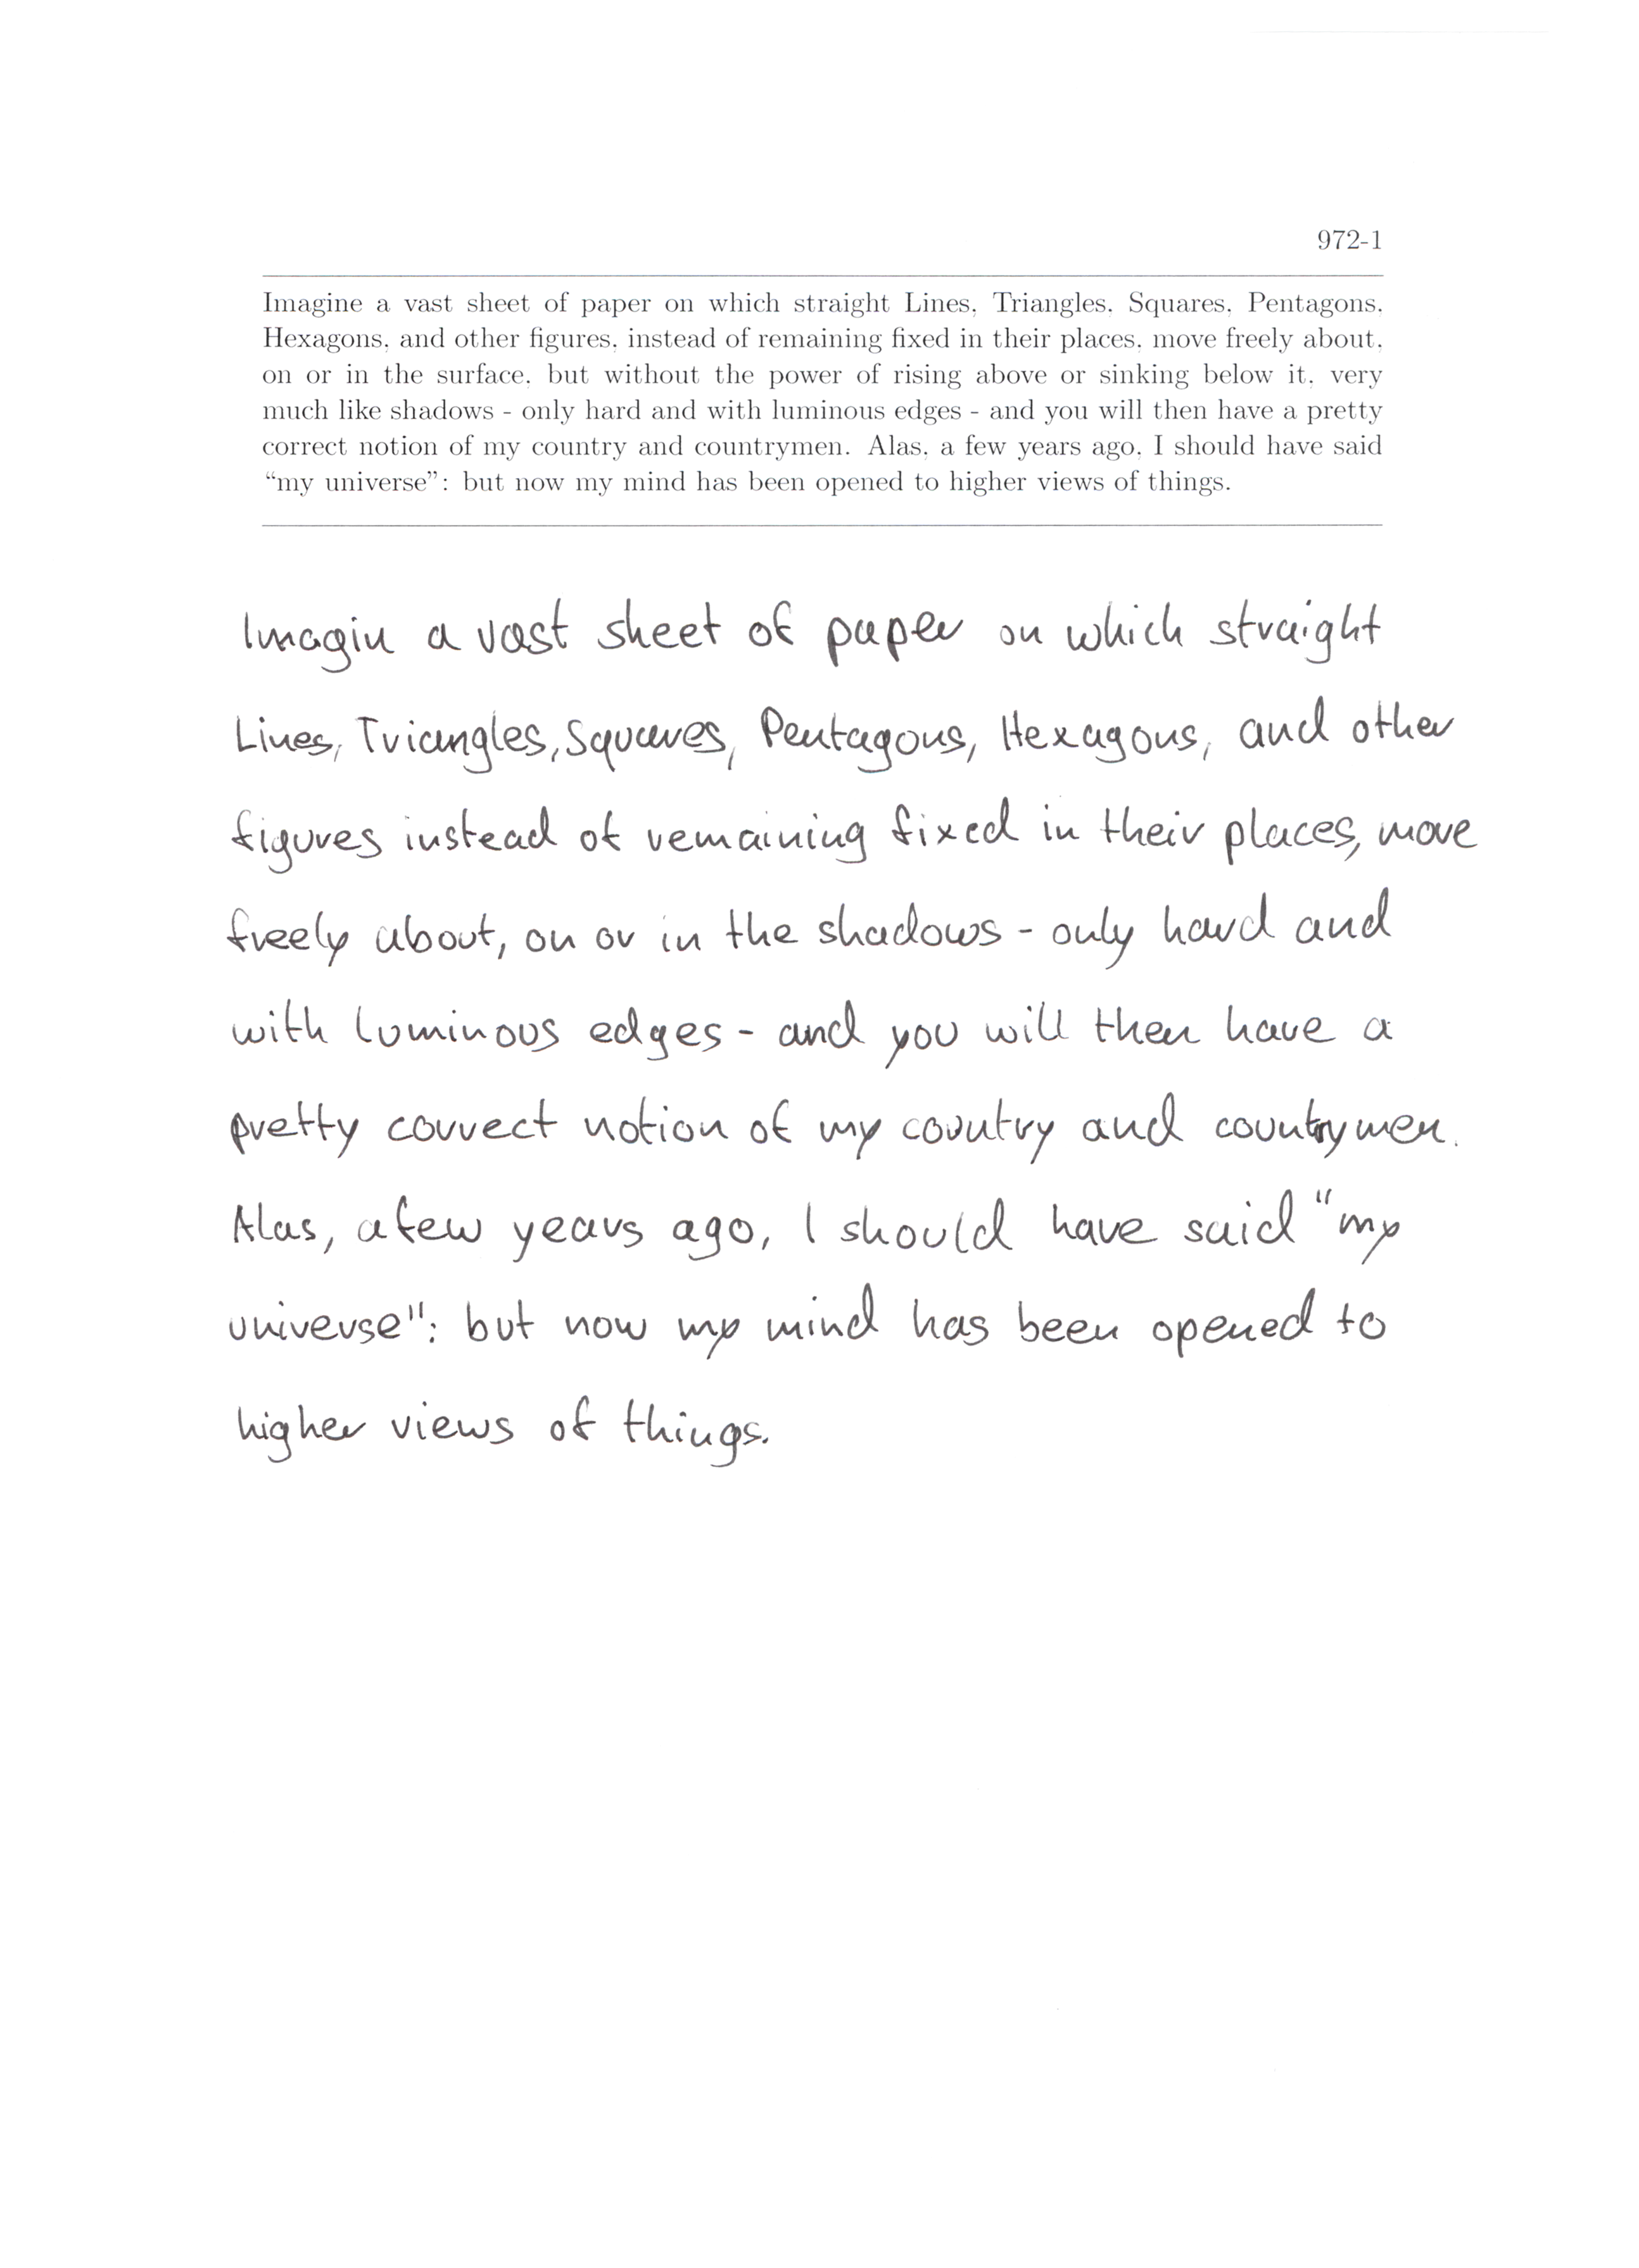 972-1
Imagine a vast sheet of paper on which straight Lines, Triangles, Squares, Pentagons,
Hexagons, and other figures, instead of remaining fixed in their places, move freely about,
on or in the surface, but without the power of rising above or sinking below it, very
much like shadows - only hard and with luminous edges - and you will then have a pretty
correct notion of my country and countrymen. Alas, a few years ago, I should have said
“my universe”: but now my mind has been opened to higher views of things.
Imagin a vast sheet of paper on which straight
Lines, Triangles, Squares, Pentagons, Hexagons, and other
figures instead of remaining fixed in their places, move
freely about, on or in the shadows - only hard and
with luminous edges - and you will then have a
pretty correct notion of my country and countrymen.
Alas, a few years ago, I should have said "my
universe": but now my mind has been opened to
higher views of things.